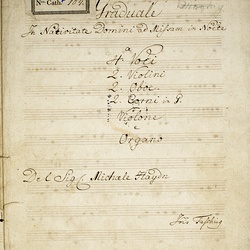 Graduale
In Nativitate Domini ad Missam in Nocte
4 Voci
2. Violini
2. Oboe
2. Corni in G.
Violone
e
Organo
Del Sig: Michaele Haydn